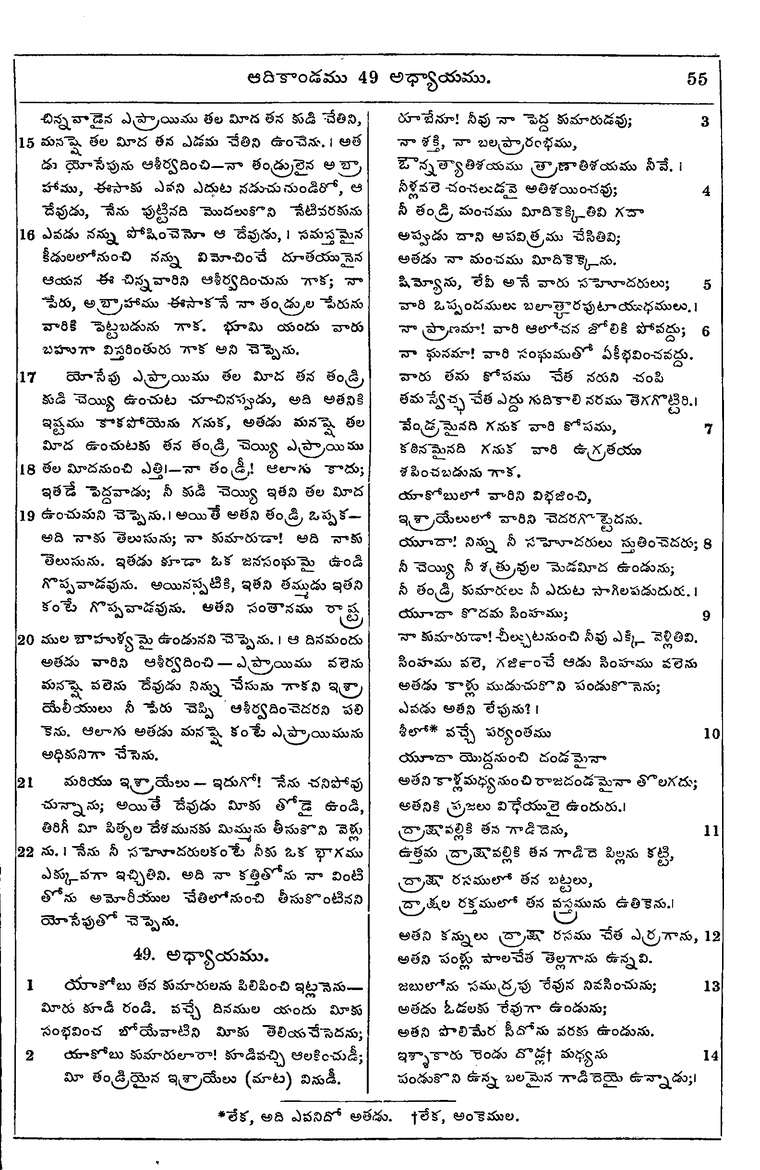 ఆదికాండము 49 అధ్యాయము. 55
చిన్నవాడైన ఎఫ్రాయిము తల మీద తన కుడి చేతిని,
15 మనష్షె తల మీద తన ఎడమ చేతిని ఉంచెను. । అత
డు యోసేపును ఆశీర్వదించి—నా తండ్రులైన అబ్రా
హాము, ఈసాకు ఎవని ఎదుట నడుచునుండిరో, ఆ
దేవుడు, నేను పుట్టినది మొదలుకొని నేటివరకును
16 ఎవడు నన్ను పోషించెనో ఆ దేవుడు, । సమస్తమైన
కీడులలోనుంచి నన్ను విమోచించే దూతయునైన
ఆయన ఈ చిన్నవారిని ఆశీర్వదించును గాక; నా
పేరు, అబ్రాహాము ఈసాకనే నా తండ్రుల పేరును
వారికి పెట్టబడును గాక. భూమి యందు వారు
బహుగా విస్తరింతురు గాక అని చెప్పెను.
17 యోసేపు ఎఫ్రాయిము తల మీద తన తండ్రి
కుడి చెయ్యి ఉంచుట చూచినప్పుడు, అది అతనికి
ఇష్టము కాకపోయెను గనుక, అతడు మనష్షె తల
మీద ఉంచుటకు తన తండ్రి చెయ్యి ఎఫ్రాయిము
18 తల మీదనుంచి ఎత్తి।—నా తండ్రీ! ఆలాగు కాదు;
ఇతడే పెద్దవాడు; నీ కుడి చెయ్యి ఇతని తల మీద
19 ఉంచుమని చెప్పెను.। అయితే అతని తండ్రి ఒప్పక—
అది నాకు తెలుసును; నా కుమారుడా! అది నాకు
తెలుసును. ఇతడు కూడా ఒక జనసంఘమై ఉండి
గొప్పవాడవును. అయినప్పటికి, ఇతని తమ్ముడు ఇతని
కంటే గొప్పవాడవును. అతని సంతానము రాష్ట్ర
20 ముల బాహుళ్యమై ఉండునని చెప్పెను.। ఆ దినమందు
అతడు వారిని ఆశీర్వదించి—ఎఫ్రాయిము వలెను
మనష్షె వలెను దేవుడు నిన్ను చేసును గాకని ఇశ్రా
యేలీయులు నీ పేరు చెప్పి ఆశీర్వదించెదరని పలి
కెను. ఆలాగు అతడు మనష్షె కంటే ఎఫ్రాయిమును
అధికునిగా చేసెను.
21 మరియు ఇశ్రాయేలు—ఇదుగో! నేను చనిపోవు
చున్నాను; అయితే దేవుడు మీకు తోడై ఉండి,
తిరిగీ మీ పితృల దేశమునకు మిమ్మును తీసుకొని వెళ్లు
22 ను.। నేను నీ సహోదరులకంటే నీకు ఒక భాగము
ఎక్కువగా ఇచ్చితిని. అది నా కత్తితోను నా వింటి
తోను అమోరీయుల చేతిలోనుంచి తీసుకొంటినని
యోసేపుతో చెప్పెను.
49. అధ్యాయము.
1 యాకోబు తన కుమారులను పిలిపించి ఇట్లనెను—
మీరు కూడి రండి. వచ్చే దినముల యందు మీకు
సంభవించ బోయేవాటిని మీకు తెలియచేసెదను;
2 యాకోబు కుమారులారా! కూడివచ్చి ఆలకించుడీ;
మీ తండ్రియైన ఇశ్రాయేలు (మాట) వినుడీ.
రూబేనూ! నీవు నా పెద్ద కుమారుడవు; 3
నా శక్తి, నా బలప్రారంభము,
ఔన్నత్యాతిశయము త్రాణాతిశయము నీవే. ।
నీళ్లవలె చంచలుడవై అతిశయించవు; 4
నీ తండ్రి మంచము మీదికెక్కితివి గదా
అప్పుడు దాని అపవిత్రము చేసితివి;
అతడు నా మంచము మీదికెక్కెను.
షిమ్యోను, లేవీ అనే వారు సహోదరులు; 5
వారి ఒప్పందములు బలాత్కారపుటాయుధములు.।
నా ప్రాణమా! వారి ఆలోచన జోలికి పోవద్దు; 6
నా ఘనమా! వారి సంఘముతో ఏకీభవించవద్దు.
వారు తమ కోపము చేత నరుని చంపి
తమస్వేచ్ఛ చేత ఎద్దు గుదికాలి నరము తెగగొట్టిరి.।
వేండ్రమైనది గనుక వారి కోపము, 7
కఠినమైనది గనుక వారి ఉగ్రతయు
శపించబడును గాక.
యాకోబులో వారిని విభజించి,
ఇశ్రాయేలులో వారిని చెదరగొట్టెదను.
యూదా! నిన్ను నీ సహోదరులు స్తుతించెదరు; 8
నీ చెయ్యి నీ శత్రువుల మెడమీద ఉండును;
నీ తండ్రి కుమారులు నీ ఎదుట సాగిలపడుదురు. ।
యూదా కొదమ సింహము; 9
నా కుమారుడా! చీల్చుటనుంచి నీవు ఎక్కి వెళ్లితివి.
సింహము వలె, గర్జించే ఆడు సింహము వలెను
అతడు కాళ్లు ముడుచుకొని పండుకొనెను;
ఎవడు అతని లేపును?।
శీలో* వచ్చే పర్యంతము 10
యూదా యొద్దనుంచి దండమైనా
అతనికాళ్లమధ్యనుంచి రాజదండమైనా తొలగదు;
అతనికి ప్రజలు విధేయులై ఉందురు.।
ద్రాక్షావల్లికి తన గాడిదెను, 11
ఉత్తమ ద్రాక్షావల్లికి తన గాడిదె పిల్లను కట్టి,
ద్రాక్షా రసములో తన బట్టలు,
ద్రాక్షల రక్తములో తన వస్త్రమును ఉతికెను.।
అతని కన్నులు ద్రాక్షా రసము చేత ఎర్రగాను, 12
అతని పంళ్లు పాలచేత తెల్లగాను ఉన్నవి.
జబులోను సముద్రపు రేవున నివసించును; 13
అతడు ఓడలకు రేవుగా ఉండును;
అతని పొలిమేర సీదోను వరకు ఉండును.
ఇశ్శాకారు రెండు దొడ్ల† మధ్యను 14
పండుకొని ఉన్న బలమైన గాడిదెయై ఉన్నాడు;।
*లేక, అది ఎవనిదో అతడు. †లేక, అంకెముల.